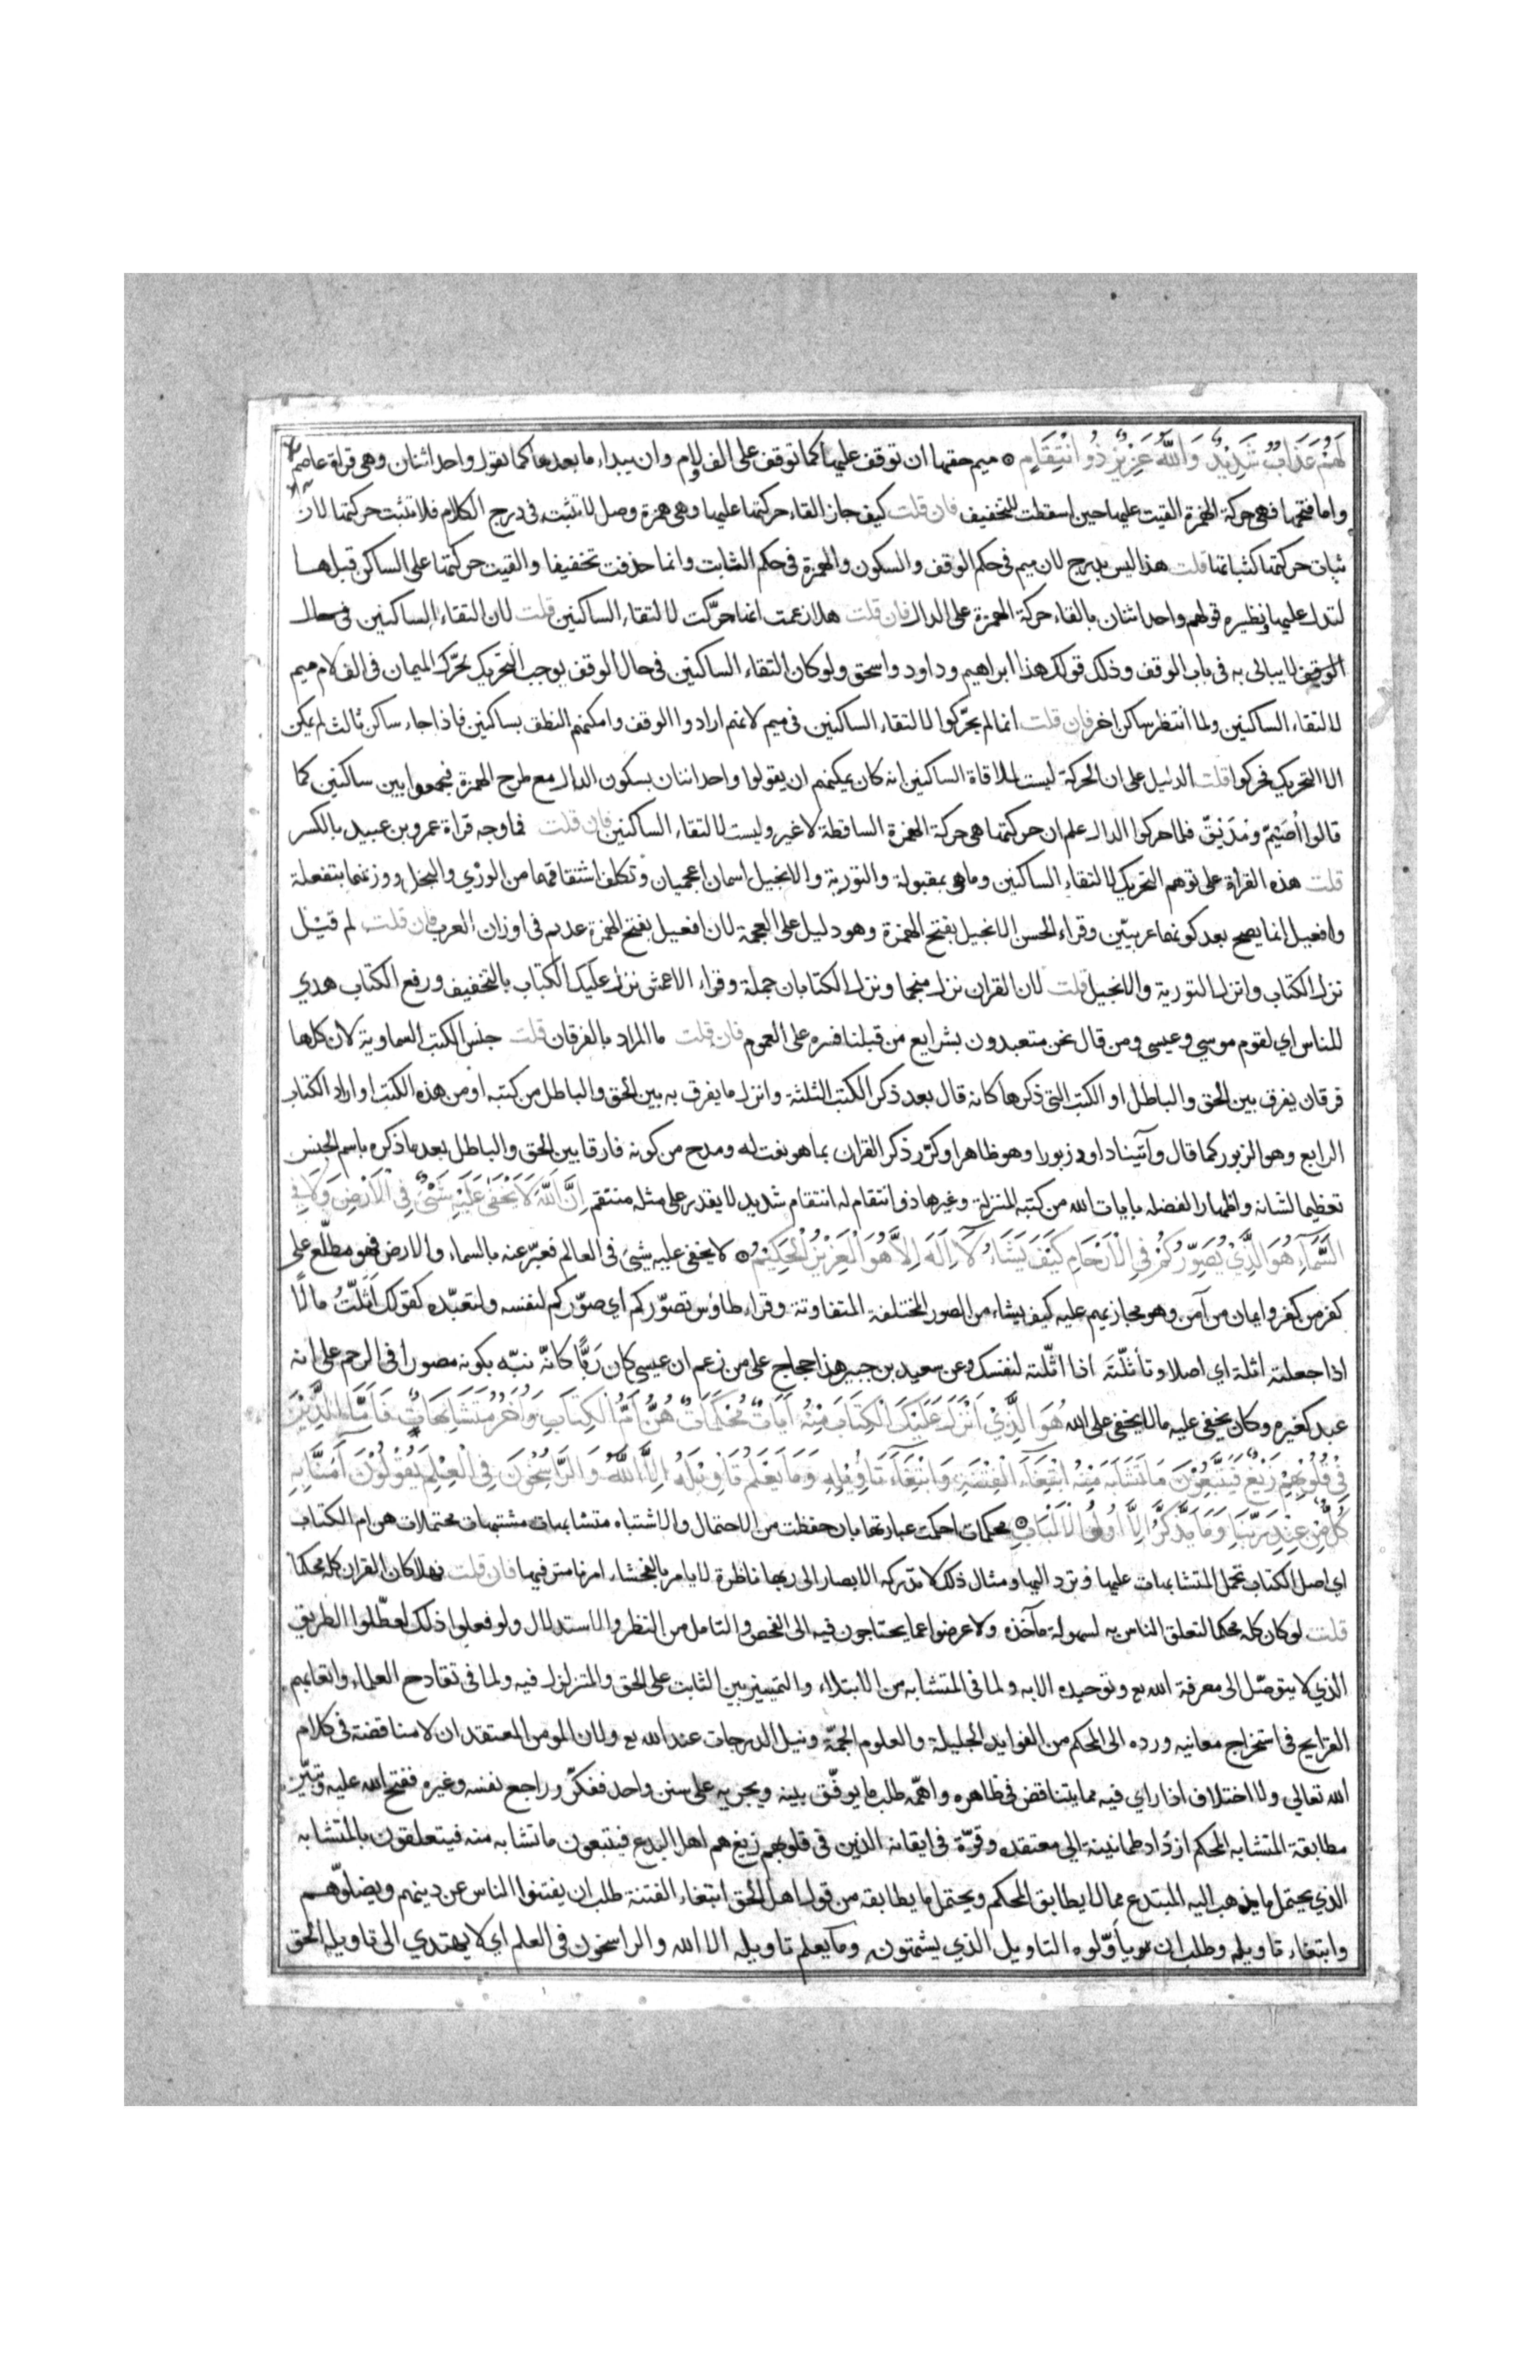 لَهُمْ عَذَابٌ شَدِيْدٌ وَاللّٰهُ عَزِيْزٌ ذُو انْتِقَامٍ ۞ ميم حقها ان توقف عليها كما توقف على الف ولام وان يبداء ما بعدها كما تقول واحد اثنان وهي قراة عاصم
واما فتحها فهي حركة الهمزة القيت عليها حين اسقطت للتخفيف فان قلت كيف جاز القاء حركتها عليها وهي همزة وصل لا تثبت في درج الكلام فلا تثبت حركتها لان
ثبات حركتها كثباتها قلت هذا ليس بدرج لان ميم في حكم الوقف والسكون والهمزة في حكم الثابت وانما حذفت تخفيفا والقيت حركتها على الساكن قبلها
لتدل عليها ونظيره قولهم واحد اثنان بالقاء حركة الهمزة على الدال فان قلت هلا زعمت انها حرّكت لالتقاء الساكنين قلت لان التقاء الساكنين في حال
الوقف لا يبالى به في باب الوقف وذلك قولك هذا ابراهيم وداود واسحق ولو كان التقاء الساكنين في حال الوقف يوجب التحريك لحرّك الميمان في الف لام ميم
لالتقاء الساكنين ولما انتظر ساكن اخر فان قلت انما لم يحرّكوا لالتقاء الساكنين في ميم لانهم ارادوا الوقف وامكنهم النطق بساكنين فاذا جاء ساكن ثالث لم يمكن
الا التحريك فحركوا قلت الدليل على ان الحركة ليست لملاقاة الساكنين انه كان يمكنهم ان يقولوا واحد اثنان بسكون الدال مع طرح الهمزة فيجمعوا بين ساكنين كما
قالوا اُصَيْمّ ومُدَيْقّ فلما حركوا الدال علم ان حركتها هي حركة الهمزة الساقطة لا غير وليست لالتقاء الساكنين فان قلت فما وجه قراة عمرو بن عبيد بالكسر
قلت هذه القراة على توهم التحريك لالتقاء الساكنين وما هي بمقبولة والتورية والانجيل اسمان اعجميان وتكلف اشتقاقهما من الوري والنجل ووزنهما بتفعلة
وافعيل انما يصح بعد كونهما عربيّين وقراء الحسن الانجيل بفتح الهمزة وهو دليل على العجمة لان افعيل بفتح الهمزة عديم في اوزان العرب فان قلت لم قيل
نزل الكتاب وانزل التورية والانجيل قلت لان القران نزل منجما ونزل الكتابان جملة وقراء الاعمش نزل عليك الكتاب بالتخفيف ورفع الكتاب هدي
للناس اي لقوم موسي وعيسي ومن قال نحن متعبدون بشرايع من قبلنا فسره على العموم فان قلت ما المراد بالفرقان قلت جنس الكتب السماوية لان كلها
فرقان يفرق بين الحق والباطل او الكتب التي ذكرها كانه قال بعد ذكر الكتب الثلثة وانزل ما يفرق به بين الحق والباطل من كتبه او من هذه الكتب او اراد الكتاب
الرابع وهو الزبور كما قال وآتينا داود زبورا وهو ظاهر او كرّر ذكر القران بما هو نعت له ومدح من كونه فارقا بين الحق والباطل بعد ما ذكره باسم الجنس
تعظيما لشانه واظهارا لفضله بايات الله من كتبه المنزلة وغيرها ذو انتقام له انتقام شديد لا يقدر على مثله منتقم اِنَّ اللّٰهَ لَا يَخْفَى عَلَيْهِ شَيْءٌ فِي الْاَرْضِ وَلَا فِي
السَّمَاءِ هُوَ الَّذِيْ يُصَوِّرُكُمْ فِي الْاَرْحَامِ كَيْفَ يَشَاءُ لَا اِلَهَ اِلَّا هُوَ الْعَزِيْزُ الْحَكِيْمُ ۞ لا يخفى عليه شيئ في العالم فعبّر عنه بالسماء والارض فهو مطّلع على
كفر من كفر وايمان من آمن وهو مجازيهم عليه كيف يشاء من الصور المختلفة المتفاوتة وقراء طاوس تصوّركم اي صوّركم لنفسه ولتعبّده كقولك اَثَّلْتُ مالًا
اذا جعلته اثلة اي اصلا وتأثّلْتَه اذا اثّلته لنفسك وعن سعيد بن جبير هذا حجاج على من زعم ان عيسي كان رَبًّا كانّه نبّه بكونه مصورا في الرحم على انه
عبد كغيره وكان يخفي عليه ما لا يخفي على الله هُوَ الَّذِيْ اَنْزَلَ عَلَيْكَ الْكِتَابَ مِنْهُ آيَاتٌ مُحْكَمَاتٌ هُنَّ اُمُّ الْكِتَابِ وَاُخَرُ مُتَشَابِهَاتٌ فَاَمَّا الَّذِيْنَ
فِيْ قُلُوْبِهِمْ زَيْغٌ فَيَتَّبِعُوْنَ مَا تَشَابَهَ مِنْهُ ابْتِغَاءَ الْفِتْنَةِ وَابْتِغَاءَ تَاْوِيْلِهِ وَمَا يَعْلَمُ تَاْوِيْلَهُ اِلَّا اللّٰهُ وَالرَّاسِخُوْنَ فِي الْعِلْمِ يَقُوْلُوْنَ آمَنَّا بِهِ
كُلٌّ مِنْ عِنْدِ رَبِّنَا وَمَا يَذَّكَّرُ اِلَّا اُولُو الْاَلْبَابِ ۞ محكمات احكمت عبارتها بان حفظت من الاحتمال والاشتباه متشابهات مشتبهات محتملات هن ام الكتاب
اي اصل الكتاب تحمل المتشابهات عليها وترد اليها ومثال ذلك لا تدركه الابصار الى ربها ناظرة لا يامر بالفحشاء امرنا مترفيها فان قلت فهلا كان القران كله محكما
قلت لو كان كله محكما لتعلق الناس به لسهولة مآخذه ولاعرضوا عما يحتاجون فيه الى الفحص والتامل من النظر والاستدلال ولو فعلوا ذلك لعطّلوا الطريق
الذي لا يتوصّل الى معرفة الله تع وتوحيده الا به ولما في المتشابه من الابتلاء والتمييز بين الثابت على الحق والمتزلزل فيه ولما في تقادح العلماء واتعابهم
القرايح في استخراج معانيه ورده الى المحكم من الفوايد الجليلة والعلوم الجمّة ونيل الدرجات عند الله تع ولان المومن المعتقد ان لا مناقضة في كلام
الله تعالي ولا اختلاف اذا راي فيه مما يتناقض في ظاهره واهمّه طلب ما يوفّق بينه ويجريه على سنن واحد ففكّر وراجع نفسه وغيره ففتح الله عليه وتبيّن
مطابقة المتشابه المحكم ازداد طمانينة الي معتقده وقوّة في ايقانه الذين في قلوبهم زيغ هم اهل البدع فيتبعون ما تشابه منه فيتعلقون بالمتشابه
الذي يحتمل ما يذهب اليه المبتدع مما لا يطابق المحكم ويحتمل ما يطابقه من قول اهل الحق ابتغاء الفتنة طلب ان يفتنوا الناس عن دينهم ويضلوّهم
وابتغاء تاويله وطلب ان يأوّلوه التاويل الذي يشتهون وما يعلم تاويله الا الله والراسخون في العلم اي لا يهتدي الى تاويله الحق